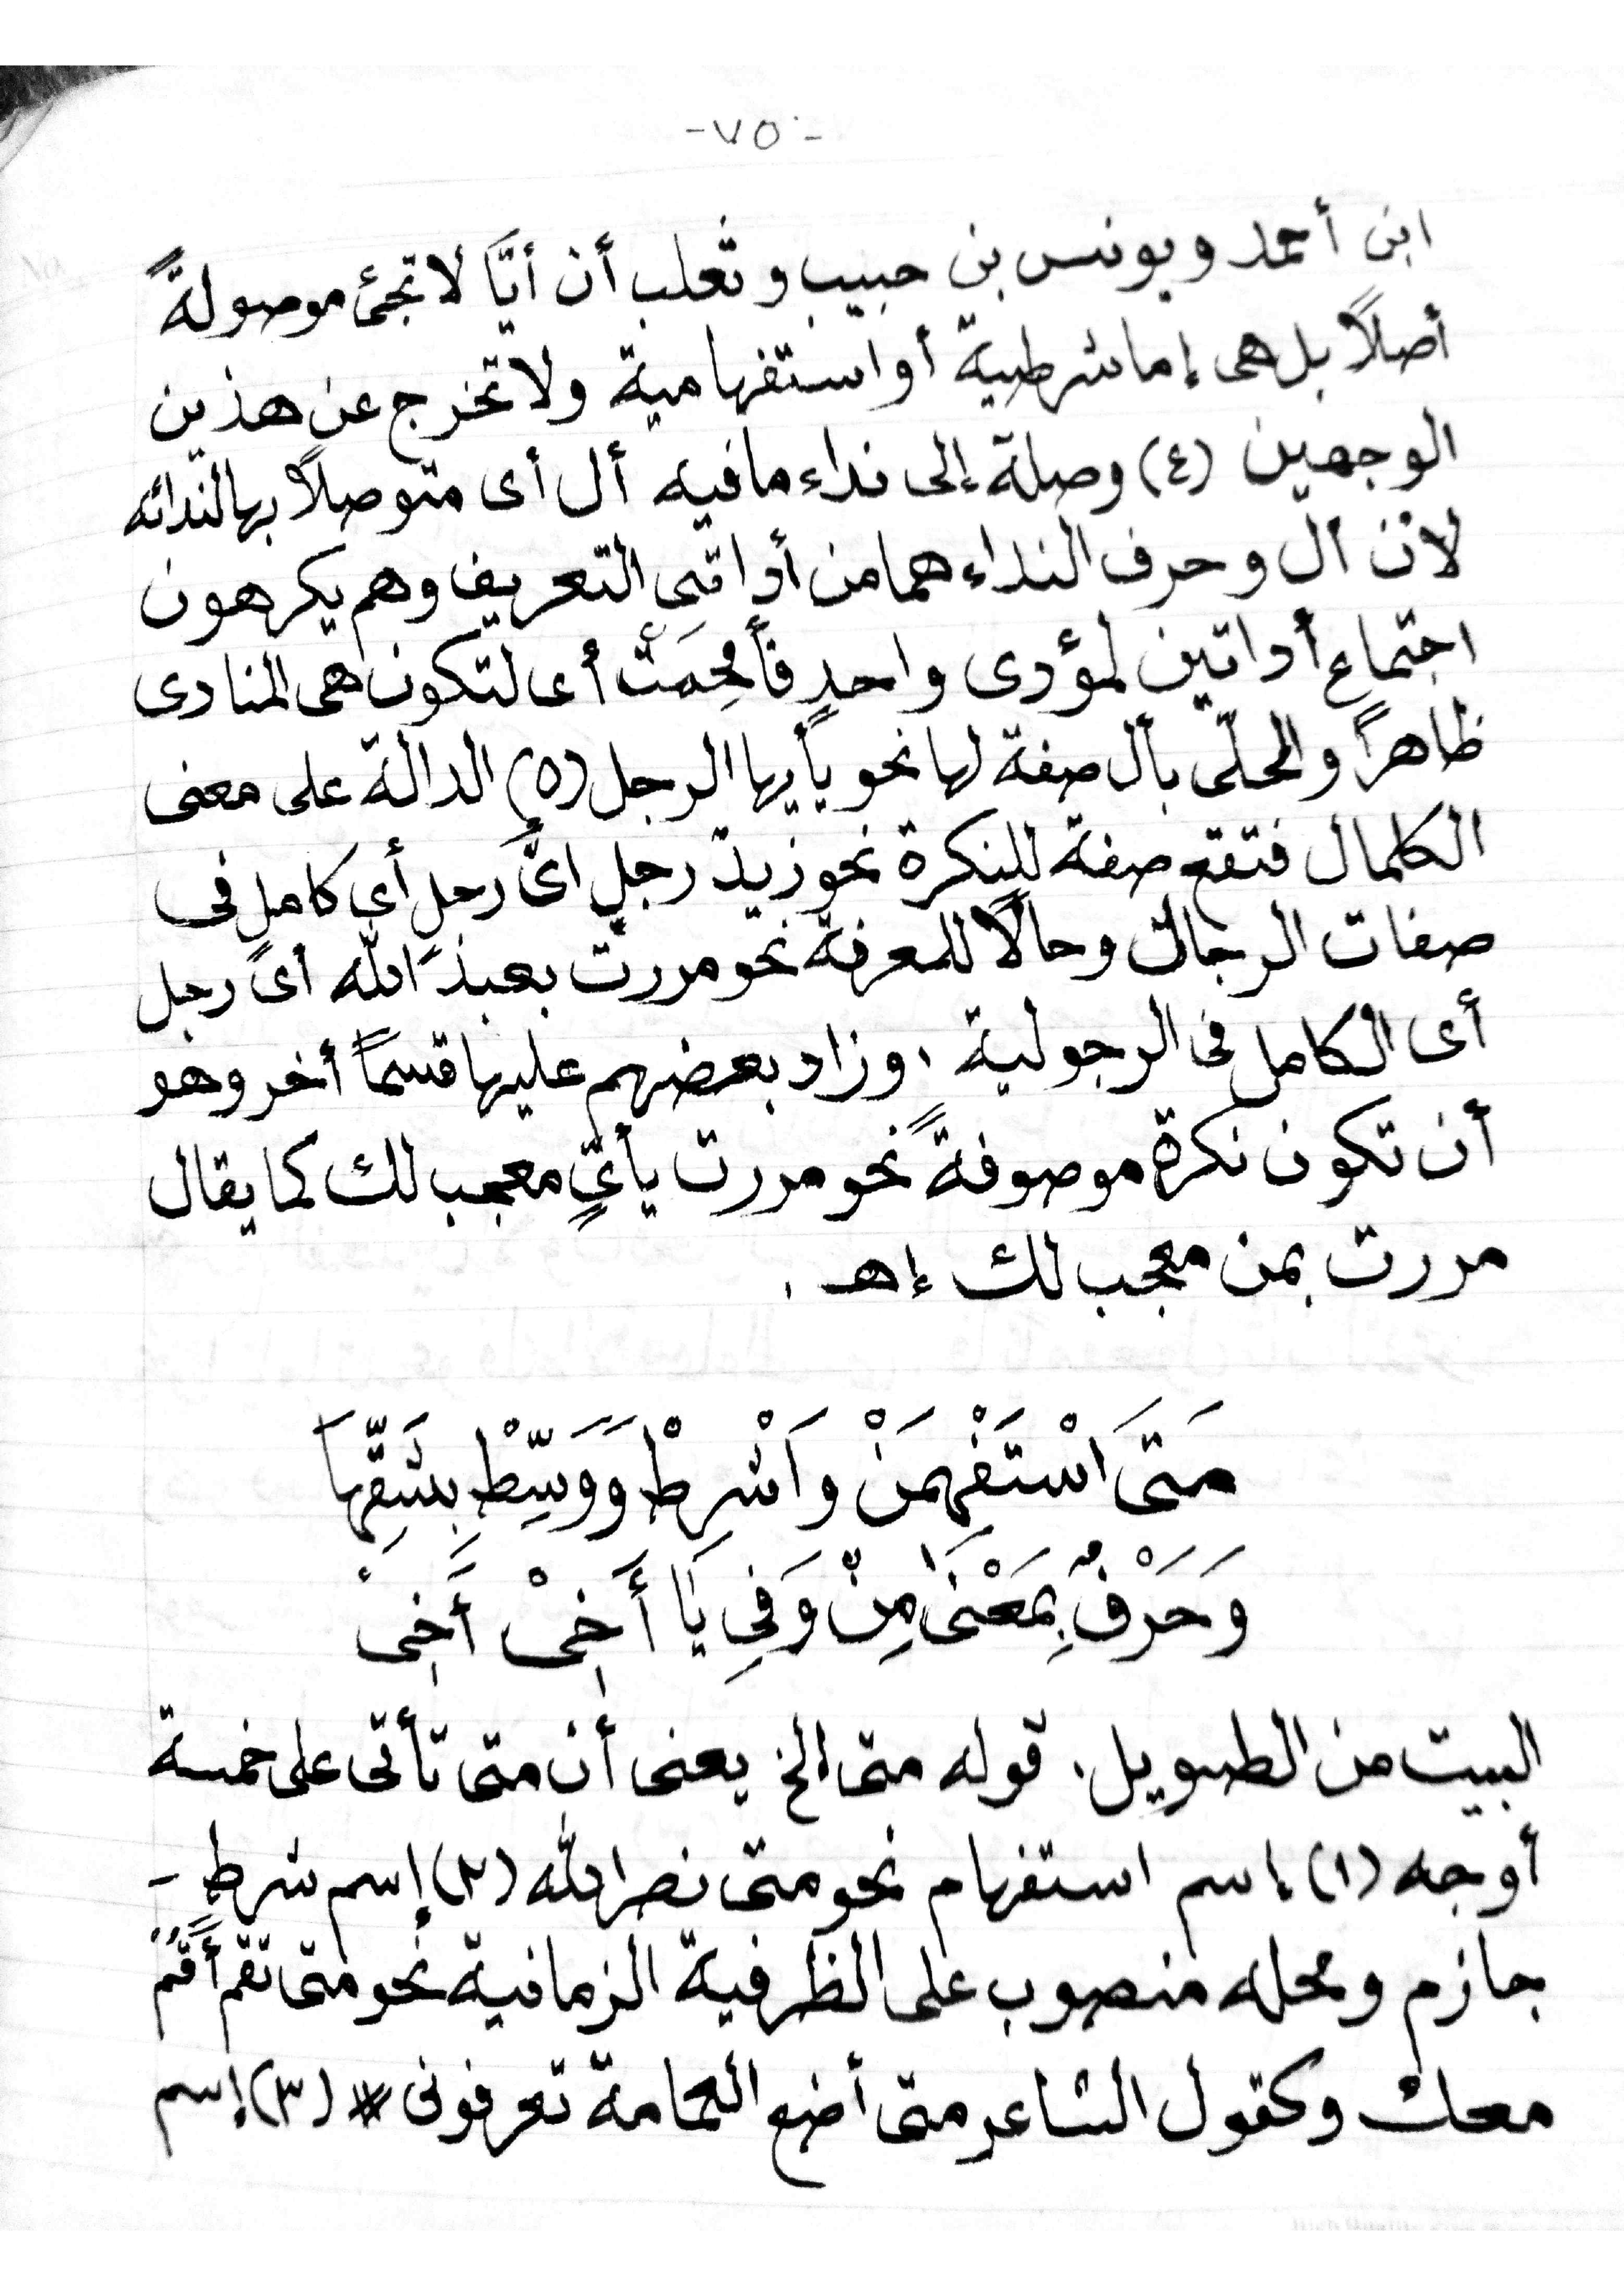 -٧٥-
ابن أحمد ويونس بن حبيب وثعلب أن أيًّا لا تجئ موصولةً
أصلاً بل هى إما شرطية أو استفهامية ولا تخرج عن هذين
الوجهين (٤) وصلة إلى نداء ما فيه أل أى متوصلاً بها لندائه
لأن أل وحرف النداء هما من أداتى التعريف وهم يكرهون
اجتماع أداتين لمؤدى واحدٍ فأقحمت أى لتكون هى المنادى
ظاهراً والمحلّى بأل صفة لها نحو يأيها الرجل (٥) الدالة على معنى
الكمال فتقع صفة للنكرة نحو زيدٌ رجلٌ أىُّ رجلٍ أي كامل فى
صفات الرجال وحالًا للمعرفة نحو مررت بعبد الله أىَّ رجل
أى الكامل فى الرجولية ، وزاد بعضهم عليها قسماً أخر وهو
أن تكون نكرة موصوفةً نحو مررت بأيٍّ معجب لك كما يقال
مررت بمن معجب لك إهـ .
مَتَى اسْتَفْهِمَنْ وَاشْرِطْ وَوَسِّطْ بِشَقِّهَا
وَحَرْفٌ بِمَعْنَى مِنْ وَفِى يَا أَخِىْ أَخِى
البيت من الطويل . قوله متى الخ يعنى أن متى تأتى على خمسة
أوجه (١) إسم استفهام نحو متى نصر الله (٢) إسم شرط -
جازم ومحله منصوب على الظرفية الزمانية نحو متى تقم أقم
معك وكقول الشاعر متى أضع العمامة تعرفونى # (٣) إسم